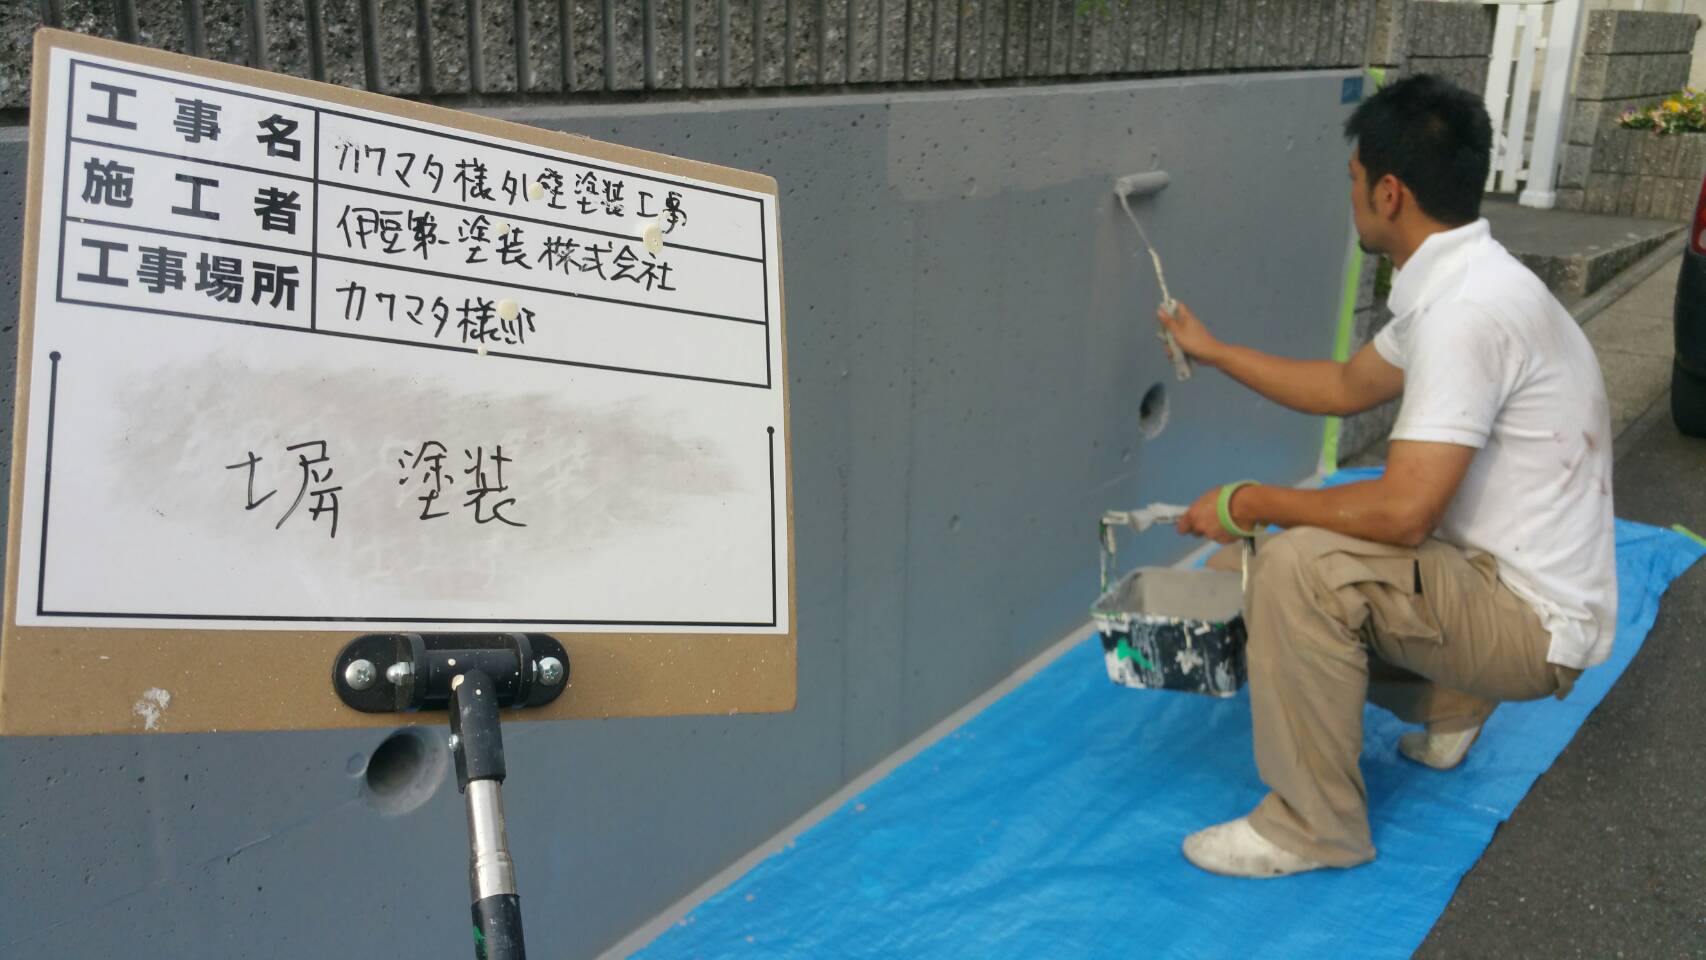 工事名 カワマタ様外壁塗装工事
施工者 伊豆第一塗装株式会社
工事場所 カワマタ様邸
塀 塗装